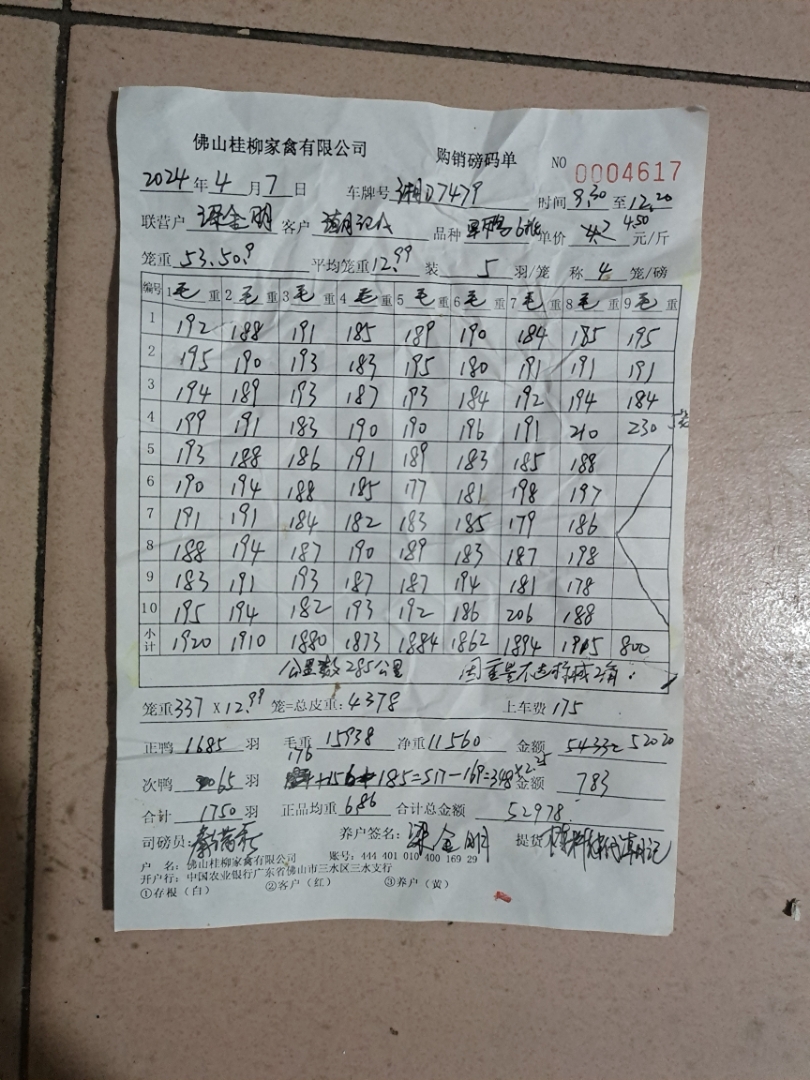 佛山桂柳家禽有限公司 购销磅码单 NO 0004617
2024年4月7日 车牌号 湘D7479 时间9.30至12.20
联营户 梁金明 客户 品种 单价 4.50 元/斤
笼重 53.50.9 平均笼重12.99 装 5 羽/笼 称 4 笼/磅
编号 1毛重 2毛重 3毛重 4毛重 5毛重 6毛重 7毛重 8毛重 9毛重
1 192 188 191 185 189 190 184 185 195
2 195 190 193 183 195 180 191 191 191
3 194 189 193 187 193 184 192 194 184
4 199 191 183 190 190 196 191 210 230
5 193 188 186 191 189 183 185 188
6 190 194 188 185 177 181 198 197
7 191 191 184 182 183 185 179 186
8 188 194 187 190 189 183 187 198
9 183 191 193 187 187 194 181 178
10 195 194 182 193 192 186 206 188
小计 1920 1910 1880 1873 1884 1862 1894 1915 800
公里数285公里 因重量不达标减2角.
笼重337×12.99笼=总皮重:4378 上车费 175
正鸭 1685 羽 毛重 15938 净重11560 金额 52020
次鸭 65 羽 176+156+185=517-169=348×2.25 金额 783
合计 1750 羽 正品均重6.86 合计总金额 52978.
司磅员: 养户签名: 梁金明 提货
户 名: 佛山桂柳家禽有限公司 账号: 444 401 010 400 169 29
开户行: 中国农业银行广东省佛山市三水区三水支行
①存根（白） ②客户（红） ③养户（黄）